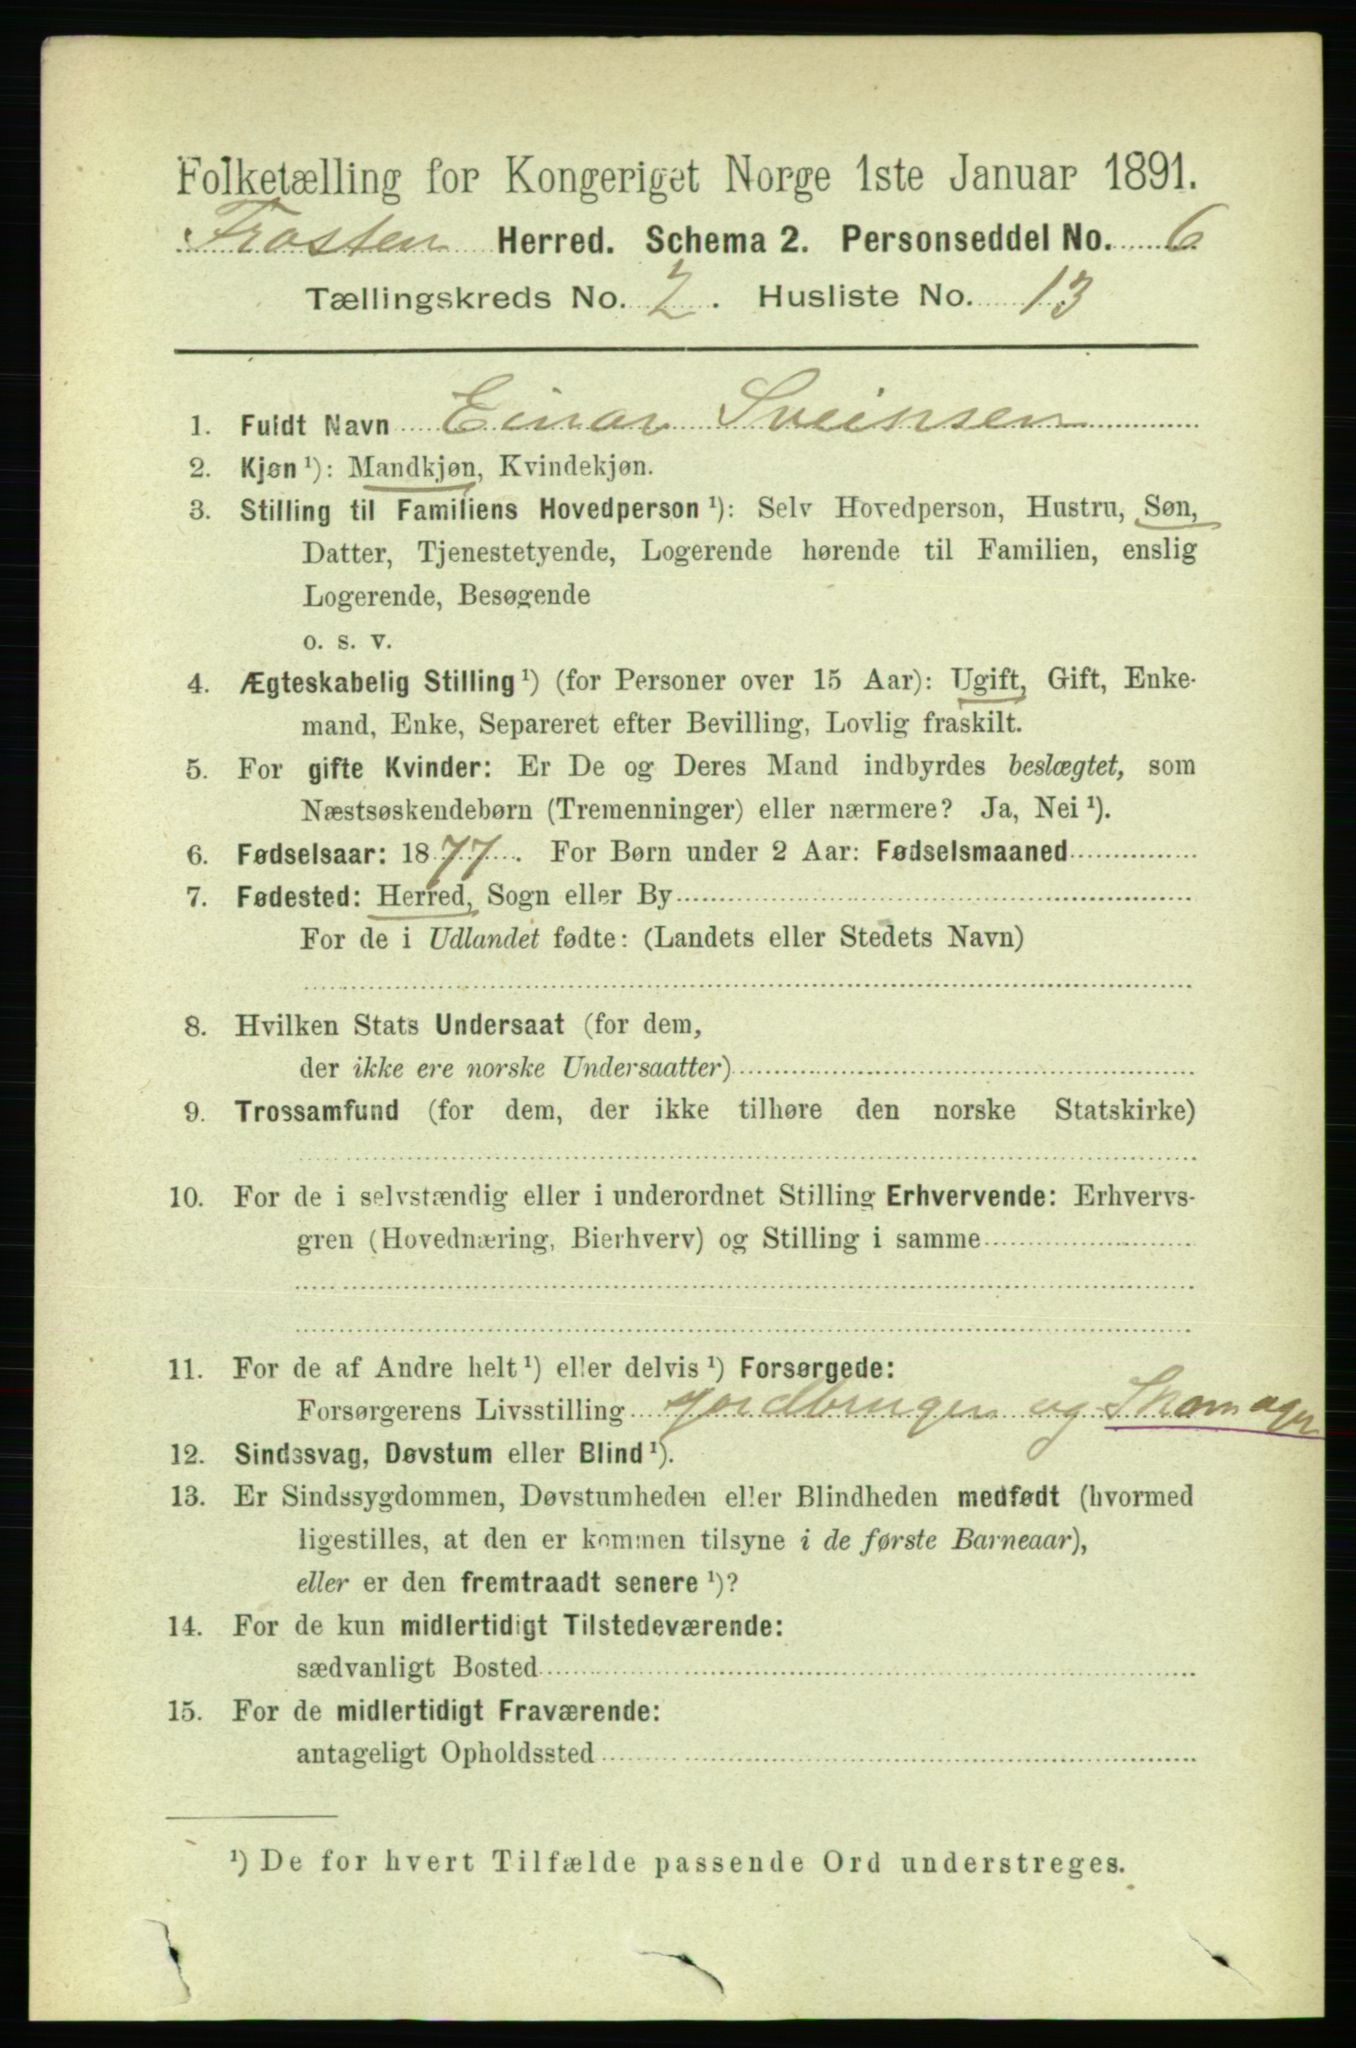 Folketælling for Kongeriget Norge 1ste Januar 1891.
Frosten Herred. Schema 2. Personseddel No. 6
Tællingskreds No. 2. Husliste No. 13
1. Fuldt Navn Einar Sveinsen
2. Kjøn ¹): Mandkjøn, Kvindekjøn.
3. Stilling til Familiens Hovedperson ¹): Selv Hovedperson, Hustru, Søn,
Datter, Tjenestetyende, Logerende hørende til Familien, enslig
Logerende, Besøgende
o. s. v.
4. Ægteskabelig Stilling ¹) (for Personer over 15 Aar): Ugift, Gift, Enke-
mand, Enke, Separeret efter Bevilling, Lovlig fraskilt.
5. For gifte Kvinder: Er De og Deres Mand indbyrdes beslægtet, som
Næstsøskendebørn (Tremenninger) eller nærmere? Ja, Nei ¹).
6. Fødselsaar: 1877. For Børn under 2 Aar: Fødselsmaaned
7. Fødested: Herred, Sogn eller By
For de i Udlandet fødte: (Landets eller Stedets Navn)
8. Hvilken Stats Undersaat (for dem,
der ikke ere norske Undersaatter)
9. Trossamfund (for dem, der ikke tilhøre den norske Statskirke)
10. For de i selvstændig eller i underordnet Stilling Erhvervende: Erhvervs-
gren (Hovednæring, Bierhverv) og Stilling i samme
11. For de af Andre helt ¹) eller delvis ¹) Forsørgede:
Forsørgerens Livsstilling Jordbruger og Skomager
12. Sindssvag, Døvstum eller Blind ¹).
13. Er Sindssygdommen, Døvstumheden eller Blindheden medfødt (hvormed
ligestilles, at den er kommen tilsyne i de første Barneaar),
eller er den fremtraadt senere ¹)?
14. For de kun midlertidigt Tilstedeværende:
sædvanligt Bosted
15. For de midlertidigt Fraværende:
antageligt Opholdssted
¹) De for hvert Tilfælde passende Ord understreges.